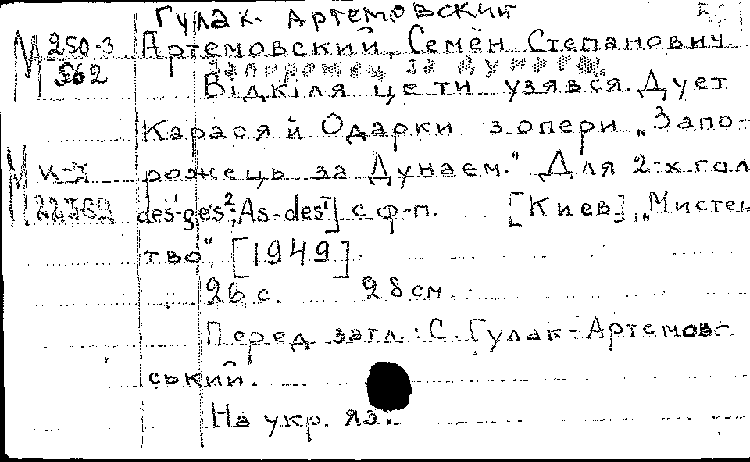 Гулак-Артемовский
М 250-3 Артемовский, Семён Степанович
562 Запорожец за Дунаем
Відкіля це ти узявся. Дует
Карася й Одарки з опери „Запо-
М рожець за Дунаем." Для 2-х гол
des¹-ges²; As-des¹] с ф-п. [Киев], „Мистец
тво" [1949].
26 с. 28 см.
Перед загл.: С. Гулак-Артемов-
ський.
На укр. яз.